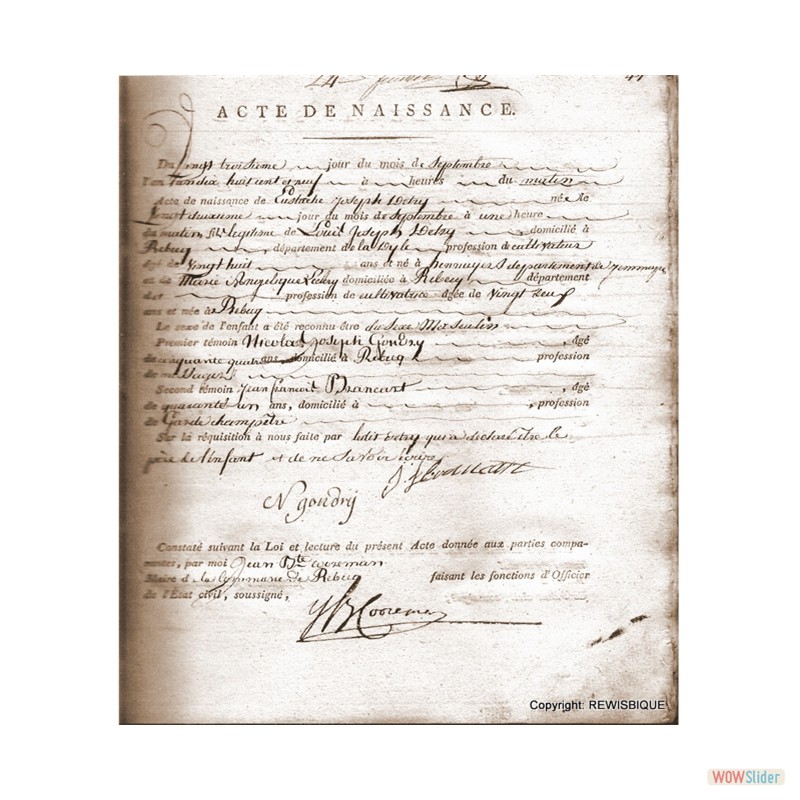 ACTE DE NAISSANCE.
Du vingt troisieme jour du mois de Septembre
l'an mil huit cent et neuf à heures du matin
Acte de naissance de Eustache Joseph Detry née le
vingt deuxieme jour du mois de Septembre à une heure
du matin, fils legitime de Louis Joseph Detry, domicilié à
Rebecq, département de la Dyle, profession de cultivateur
âgé de vingt huit ans et né à hennuyers departement de Jemmappe
et de Marie Angelique domiciliée à Rebecq département
de profession de cultivatrice âgée de vingt neuf
ans et née à Rebecq
Le sexe de l'enfant a été reconnu être du Sexe Masculin
Premier témoin Nicolas Joseph Gondry, âgé
de cinquante quatre ans, domicilié à Rebecq profession
de messager
Second témoin Jean francois Brancart, âgé
de quarante un ans, domicilié à , profession
de Garde champêtre
Sur la réquisition à nous faite par ledit Detry qui a declaré être le
père de l'enfant et de ne savoir écrire
N gondry
Constaté suivant la Loi et lecture du présent Acte donnée aux parties compa-
rantes, par moi Jean Bte Cooreman
Maire de la Commune de Rebecq faisant les fonctions d'Officier
de l'État civil, soussigné,
JB Cooreman
Copyright: REWISBIQUE
WOWSlider